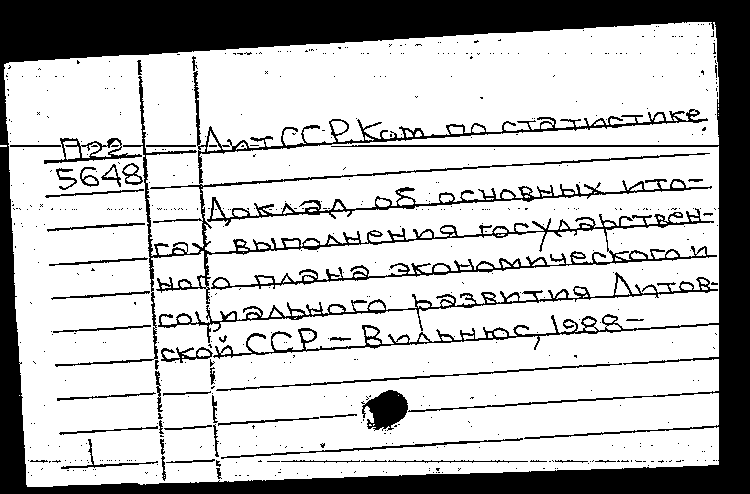 П22
5648
ЛитССР. Ком. по статистике
Доклад об основных ито-
гах выполнения государствен-
ного плана экономического и
социального развития Литов-
ской ССР. – Вильнюс, 1988–